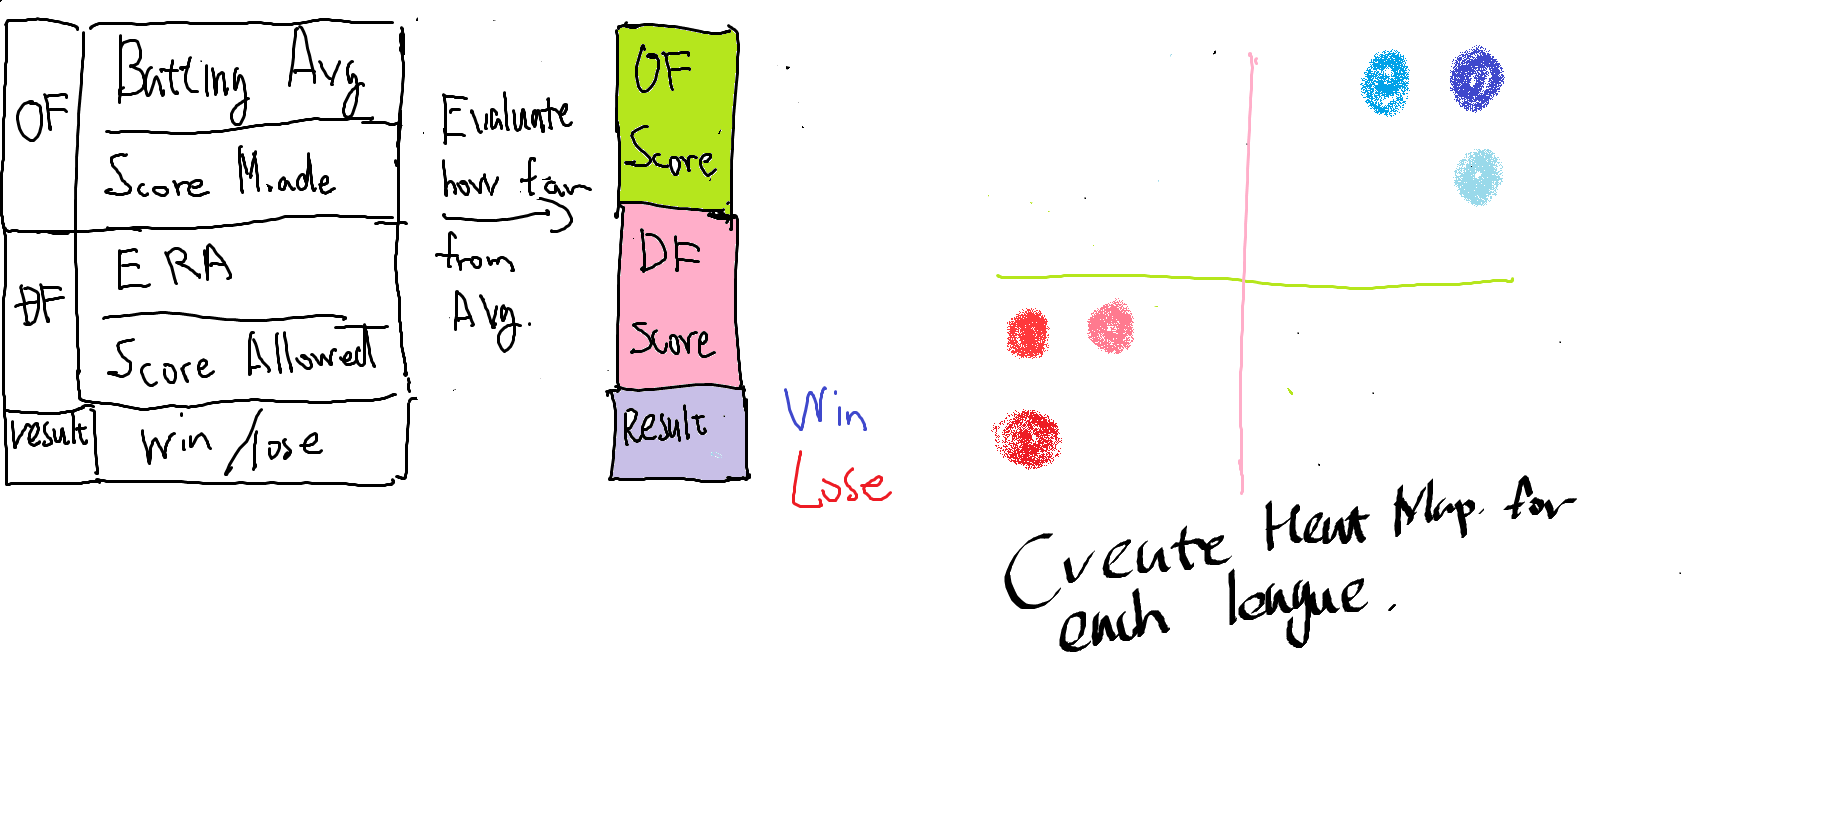 OF
Batting Avg
Score Made
DF
ERA
Score Allowed
result
win/lose
Evaluate
how far
from
Avg.
OF
Score
DF
Score
Result
Win
Lose
Create Heat Map for
each league.